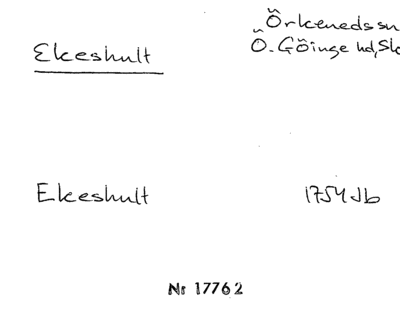 Ekeshult
Örkeneds sn
Ö. Göinge hd, Sk
Ekeshult 1754 Jb
Nr 17762